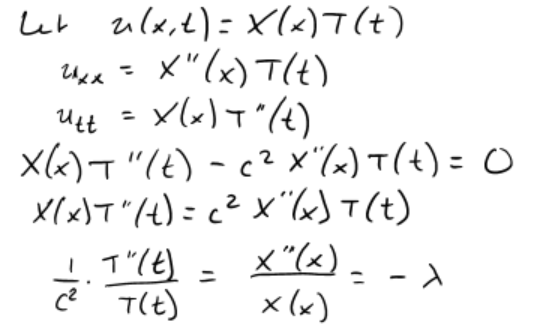 Let u(x,t) = X(x)T(t)
u_xx = X''(x)T(t)
u_tt = X(x)T''(t)
X(x)T''(t) - c² X''(x)T(t) = 0
X(x)T''(t) = c² X''(x)T(t)
1/c² · T''(t)/T(t) = X''(x)/X(x) = -λ